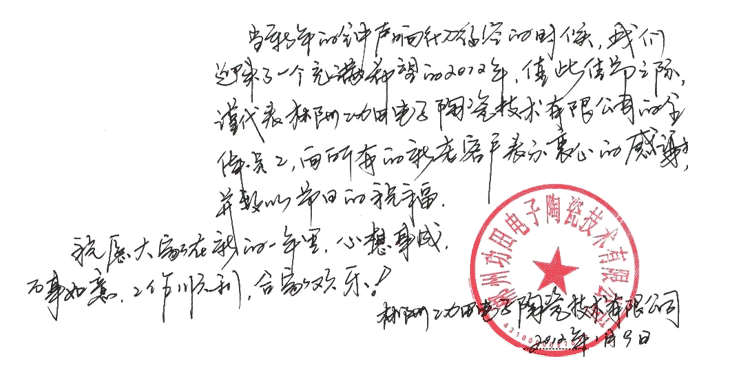 当新年的钟声响彻夜空的时候,我们
迎来了一个充满希望的2012年,值此佳节之际,
谨代表郴州功田电子陶瓷技术有限公司的全
体员工,向所有的新老客户表示衷心的感谢,
并致以节日的祝福.
祝愿大家在新的一年里,心想事成,
万事如意,工作顺利,合家欢乐!
郴州功田电子陶瓷技术有限公司
2012年1月9日
郴州功田电子陶瓷技术有限公司